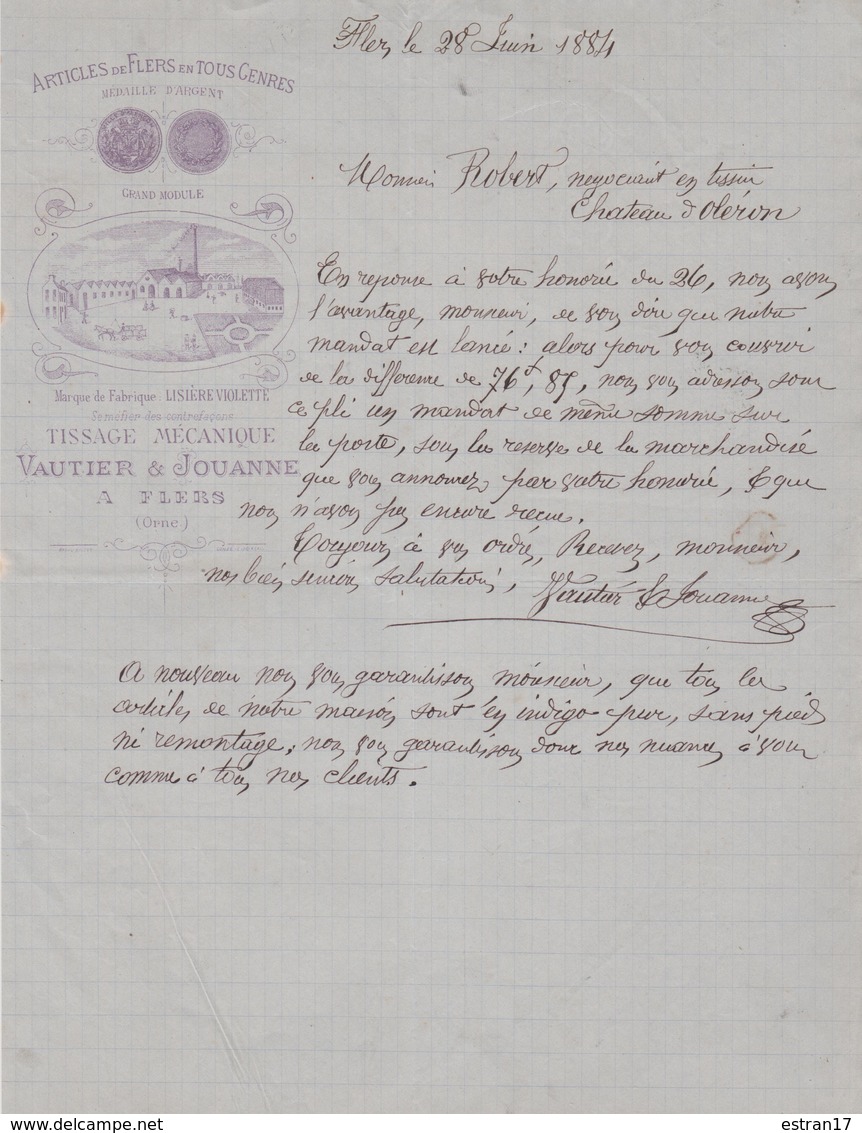 Flers le 28 Juin 1884
ARTICLES DE FLERS EN TOUS GENRES
MÉDAILLE D'ARGENT
GRAND MODULE
Marque de Fabrique : LISIÈRE VIOLETTE
Se méfier des contrefaçons
TISSAGE MÉCANIQUE
VAUTIER & JOUANNE
A FLERS
(Orne.)
Monsieur Robert, negociant en tissus
Chateau d'Oléron
En reponse à votre honorée du 26, nous avons
l'avantage, monsieur, de vous dire que notre
mandat est lancé : alors pour vous couvrir
de la difference de 76f, 85, nous vous adressons sous
ce pli un mandat de même somme sur
la poste, sous la reserve de la marchandise
que vous annoncez par votre honorée, & que
nous n'avons pas encore reçue.
Toujours à vos ordres, Recevez, monsieur,
nos bien sincères salutations,
Vautier & Jouanne
A nouveau nous vous garantissons monsieur, que tous les
articles de notre maison sont en indigo pur, sans pied
ni remontage, nous vous garantissons donc nos nuances à vous
comme à tous nos clients.
delcampe.net
estran17